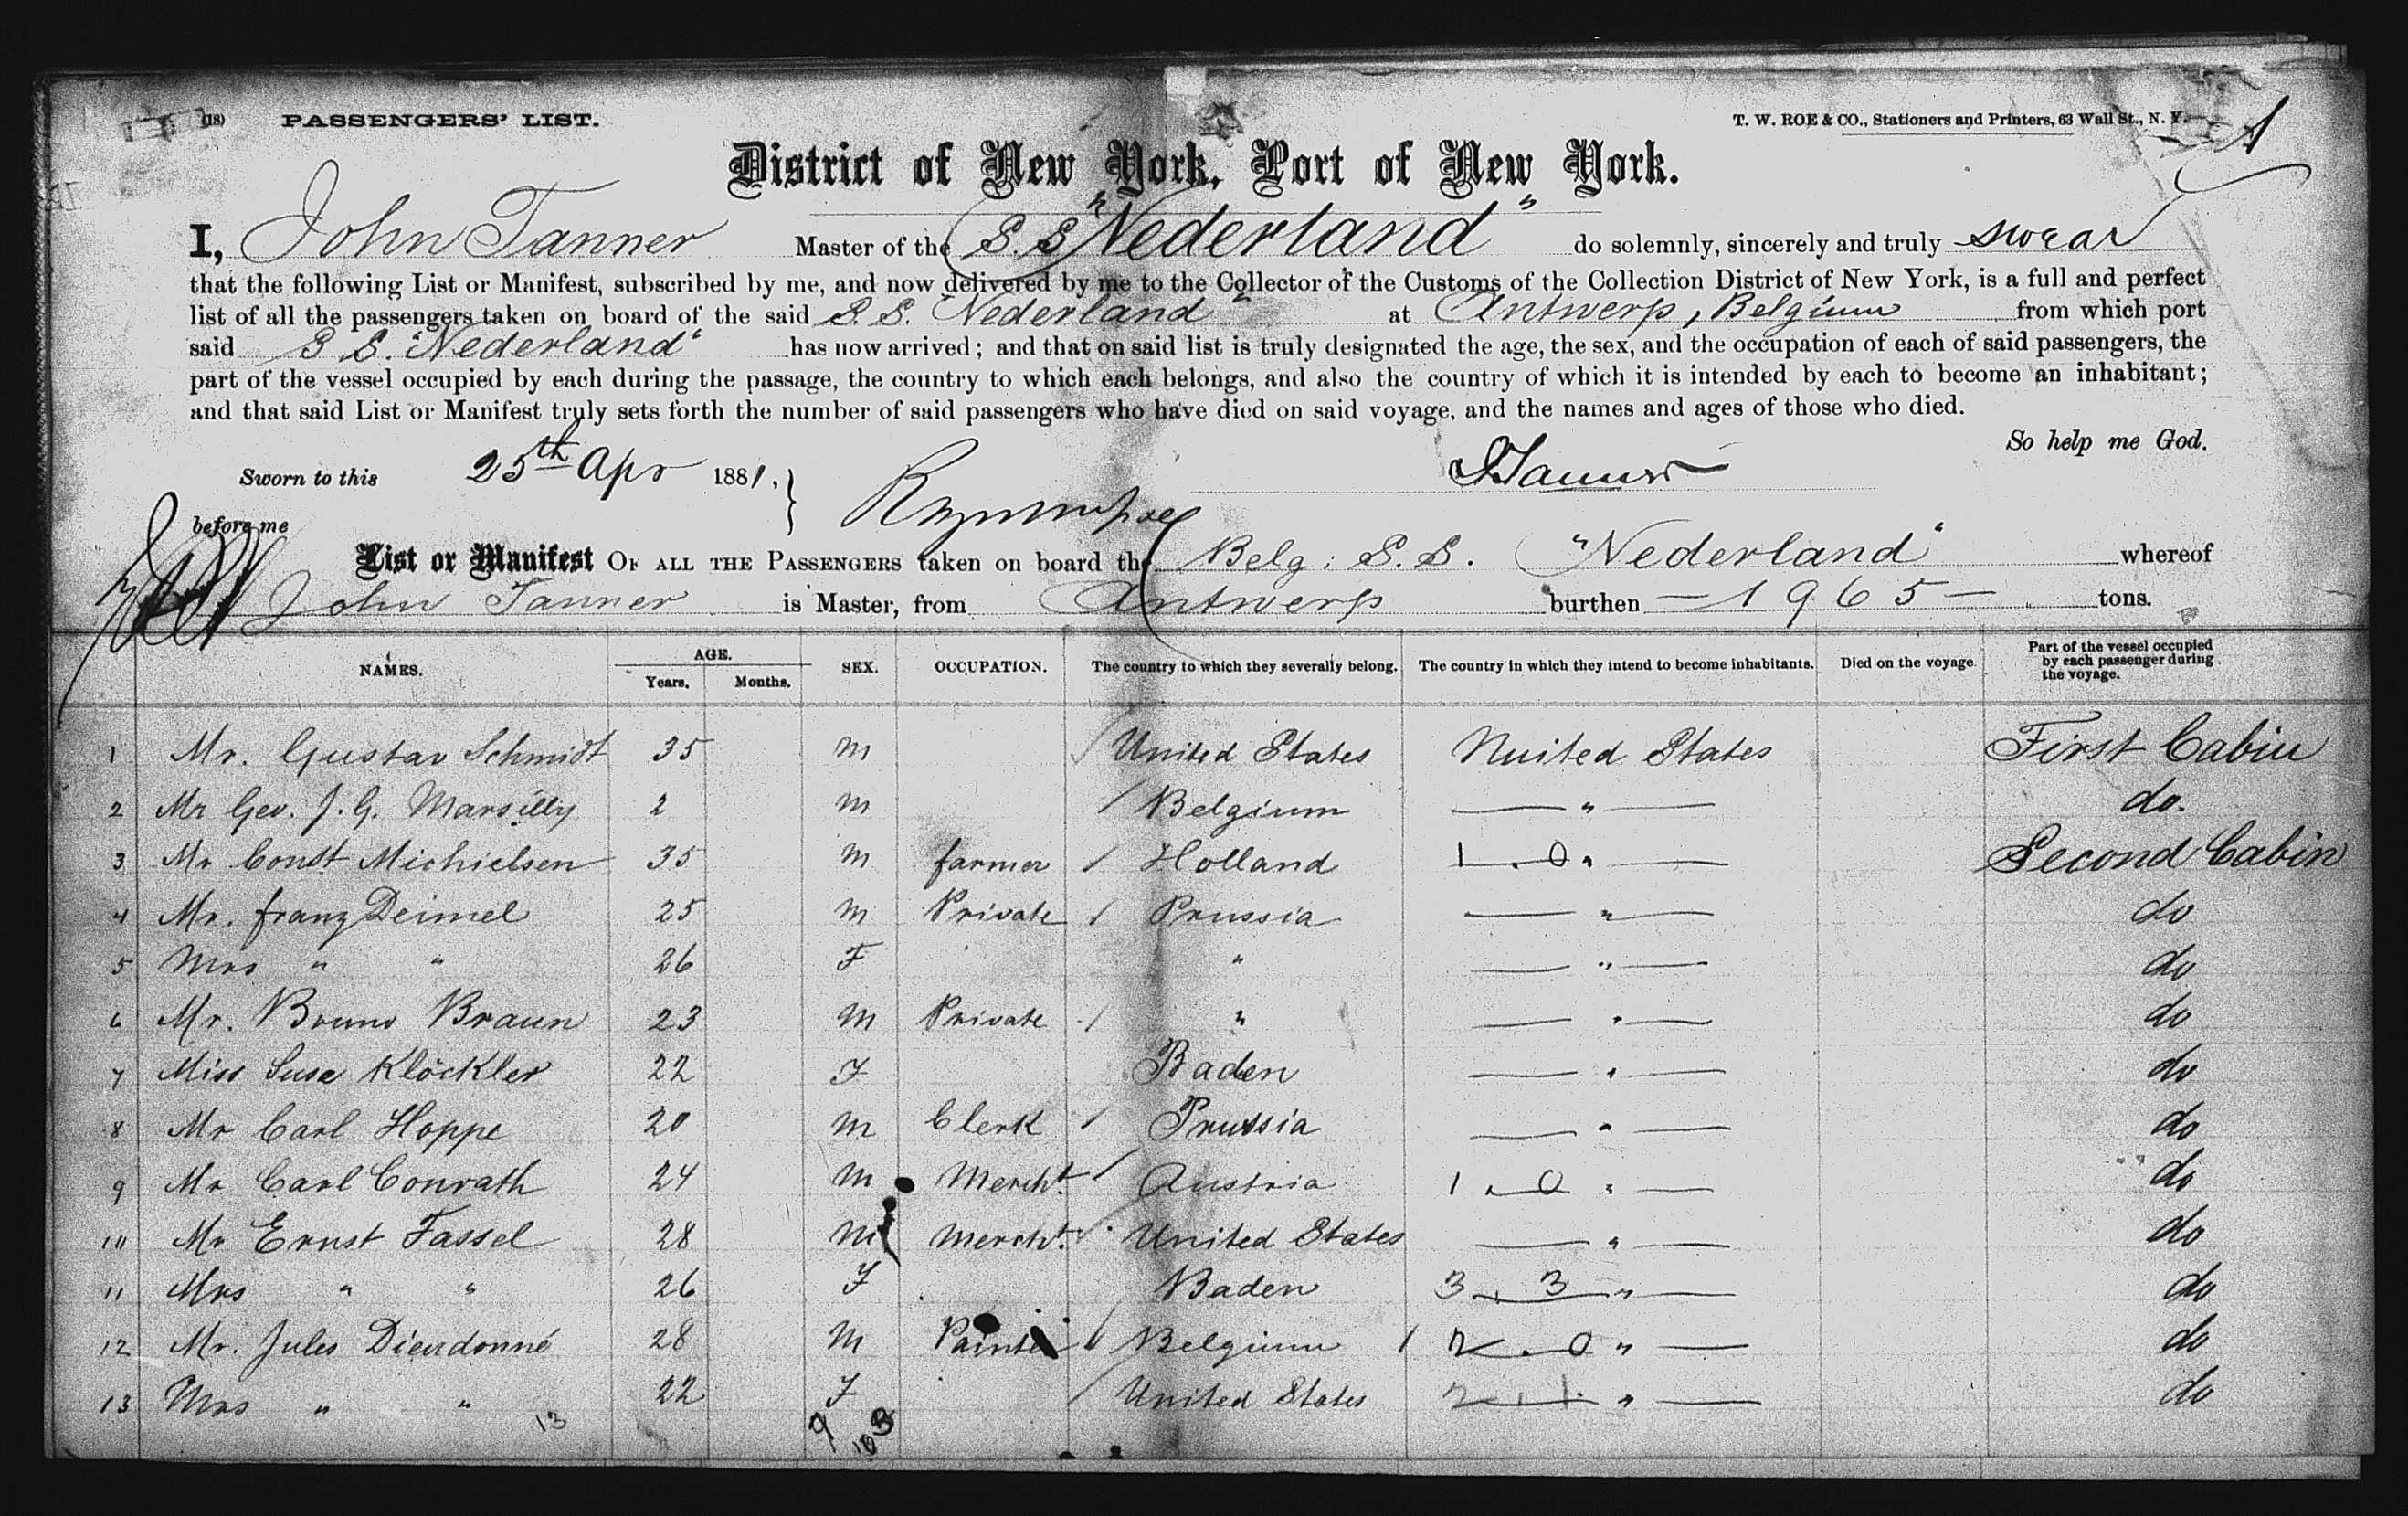 (18) PASSENGERS' LIST. T. W. ROE & CO., Stationers and Printers, 63 Wall St., N. Y. 1
District of New York, Port of New York.
I, John Tanner Master of the S.S. "Nederland" do solemnly, sincerely and truly swear
that the following List or Manifest, subscribed by me, and now delivered by me to the Collector of the Customs of the Collection District of New York, is a full and perfect
list of all the passengers taken on board of the said S.S. "Nederland" at Antwerp, Belgium from which port
said S S. "Nederland" has now arrived; and that on said list is truly designated the age, the sex, and the occupation of each of said passengers, the
part of the vessel occupied by each during the passage, the country to which each belongs, and also the country of which it is intended by each to become an inhabitant;
and that said List or Manifest truly sets forth the number of said passengers who have died on said voyage, and the names and ages of those who died.
So help me God.
Sworn to this 25th Apr 1881. JTanner
before me
List or Manifest OF ALL THE PASSENGERS taken on board the Belg: S.S. "Nederland" whereof
John Tanner is Master, from Antwerp burthen — 1965 — tons.
NAMES. AGE. Years. Months. SEX. OCCUPATION. The country to which they severally belong. The country in which they intend to become inhabitants. Died on the voyage Part of the vessel occupied by each passenger during the voyage.
1 Mr. Gustav Schmidt 35 M United States United States First Cabin
2 Mr Geo. J. G. Marsilly 2 M Belgium — " — do.
3 Mr Const Michielsen 35 M farmer Holland 1 . 0 " — Second Cabin
4 Mr. franz Deimel 25 M Private Prussia — " — do
5 Mrs " " 26 F " — " — do
6 Mr. Bruno Braun 23 M Private " — " — do
7 Miss Suse Klöckler 22 F Baden — " — do
8 Mr Carl Hoppe 20 M Clerk Prussia — " — do
9 Mr Carl Conrath 24 M Mercht. Austria 1 . 0 " — do
10 Mr Ernst Fassel 28 M Mercht. United States — " — do
11 Mrs " " 26 F Baden 3 . 3 " — do
12 Mr. Jules Dieudonné 28 M Painter Belgium 2 . 0 " — do
13 Mrs " " 22 F United States 2 . 1 " — do
13 9 10 3